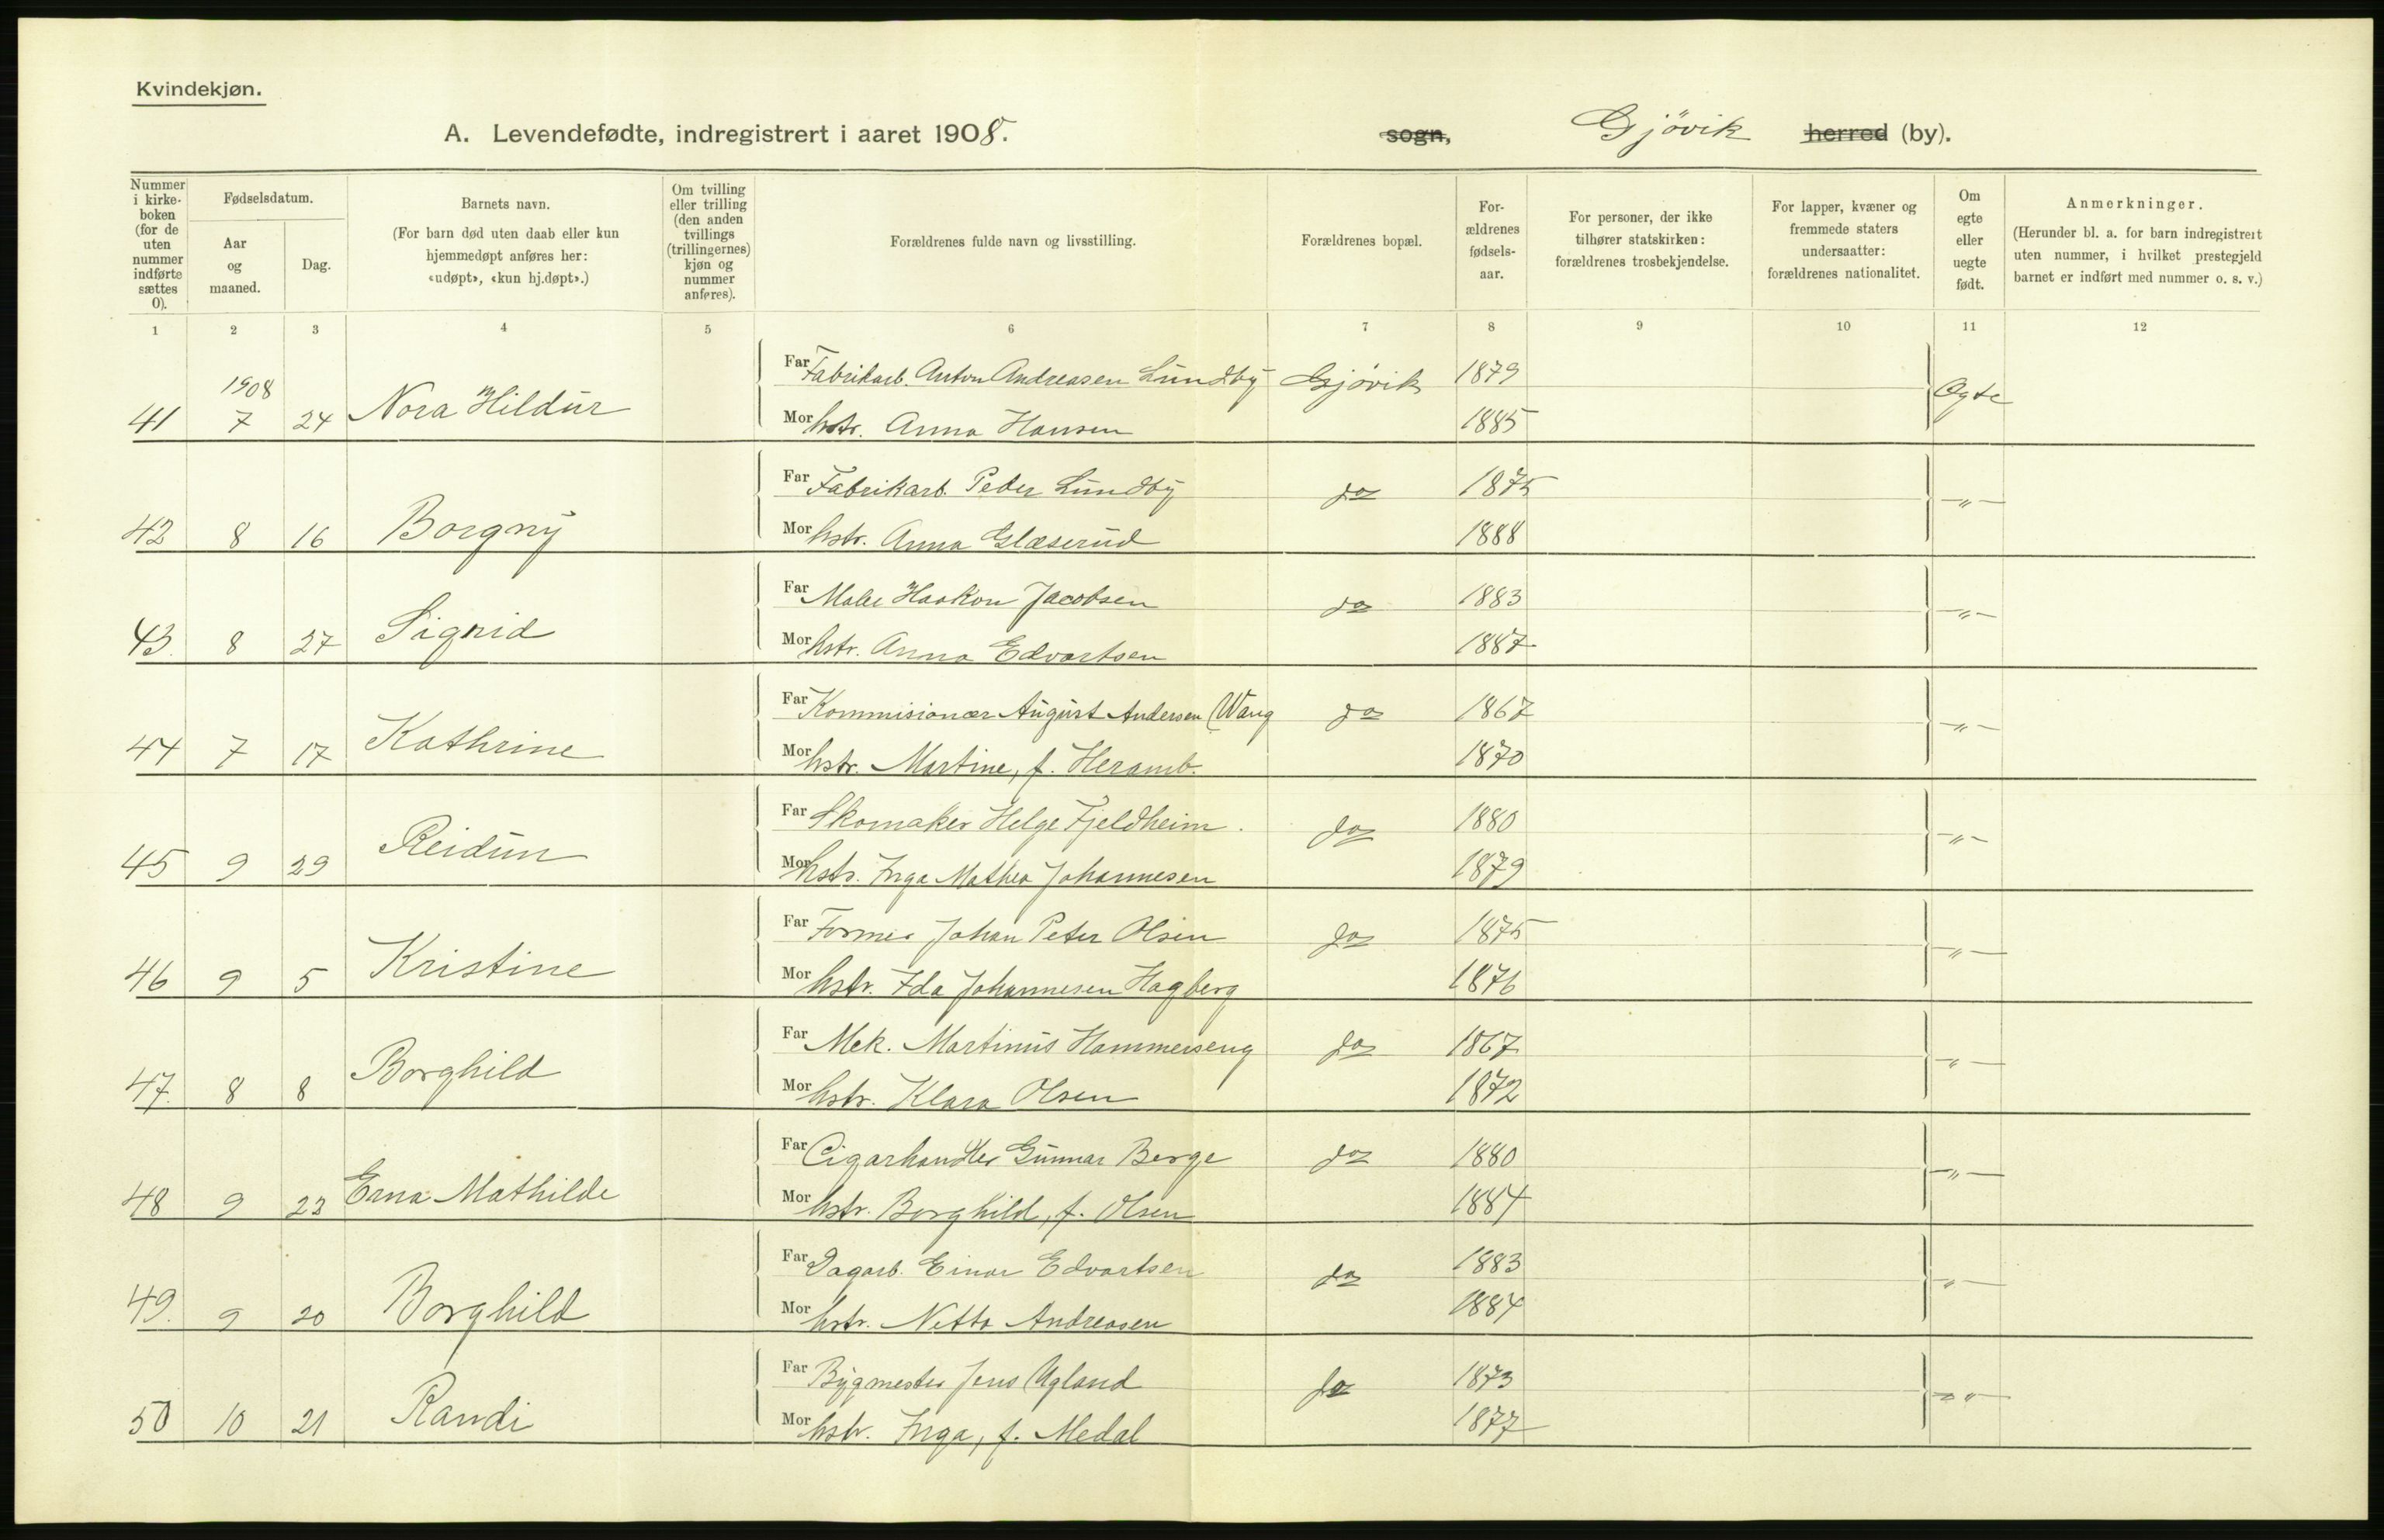 Kvindekjøn.
A. Levendefødte, indregistrert i aaret 1908.
sogn, Gjövik herred (by).
Nummer i kirke-boken (for de uten nummer indførte sættes 0).
Fødselsdatum.
Aar og maaned.
Dag.
Barnets navn.
(For barn død uten daab eller kun hjemmedøpt anføres her: «udøpt», «kun hj.døpt».)
Om tvilling eller trilling (den anden tvillings (trillingernes) kjøn og nummer anføres).
Forældrenes fulde navn og livsstilling.
Forældrenes bopæl.
For-ældrenes fødsels-aar.
For personer, der ikke tilhører statskirken: forældrenes trosbekjendelse.
For lapper, kvæner og fremmede staters undersaatter: forældrenes nationalitet.
Om egte eller uegte født.
Anmerkninger.
(Herunder bl. a. for barn indregistrert uten nummer, i hvilket prestegjeld barnet er indført med nummer o. s. v.)
1 2 3 4 5 6 7 8 9 10 11 12
1908
Far Fabrikarb. Anton Andreasen Lundby Gjövik 1879 Egte
41 7 24 Nora Hildur
Mor hstr. Anna Hansen 1885
Far Fabrikarb. Peder Lundby do 1875 -"-
42 8 16 Borgny
Mor hstr. Anna Glæserud 1888
Far Maler Haakon Jacobsen do 1883 -"-
43. 8 27 Sigrid
Mor hstr. Anna Edvartsen 1887
Far Kommisionær August Andersen (Wang do 1867 -"-
44 7 17 Kathrine
Mor hstr. Martine, f. Heramb. 1870
Far Skomaker Helge Fjeldheim. do 1880 -"-
45 9 29 Reidun
Mor hstr. Inga Mathea Johannesen 1879
Far Former Johan Peter Olsen do 1875 -"-
46 9 5 Kristine
Mor hstr. Ida Johannesen Hagberg 1876
Far Mek. Martinus Hammerseng do 1867 -"-
47. 8 8 Borghild
Mor hstr. Klara Olsen 1872
Far Cigarhandler Gunnar Berge do 1880 -"-
48 9 23 Erna Mathilde
Mor hstr. Borghild, f. Olsen 1884
Far Dagarb. Einar Edvartsen do 1883 -"-
49. 9 20 Borghild
Mor hstr. Netta Andreasen 1884
Far Bygmester Jens Ugland do 1873 -"-
50 10 21 Randi
Mor hstr. Inga, f. Medal 1877